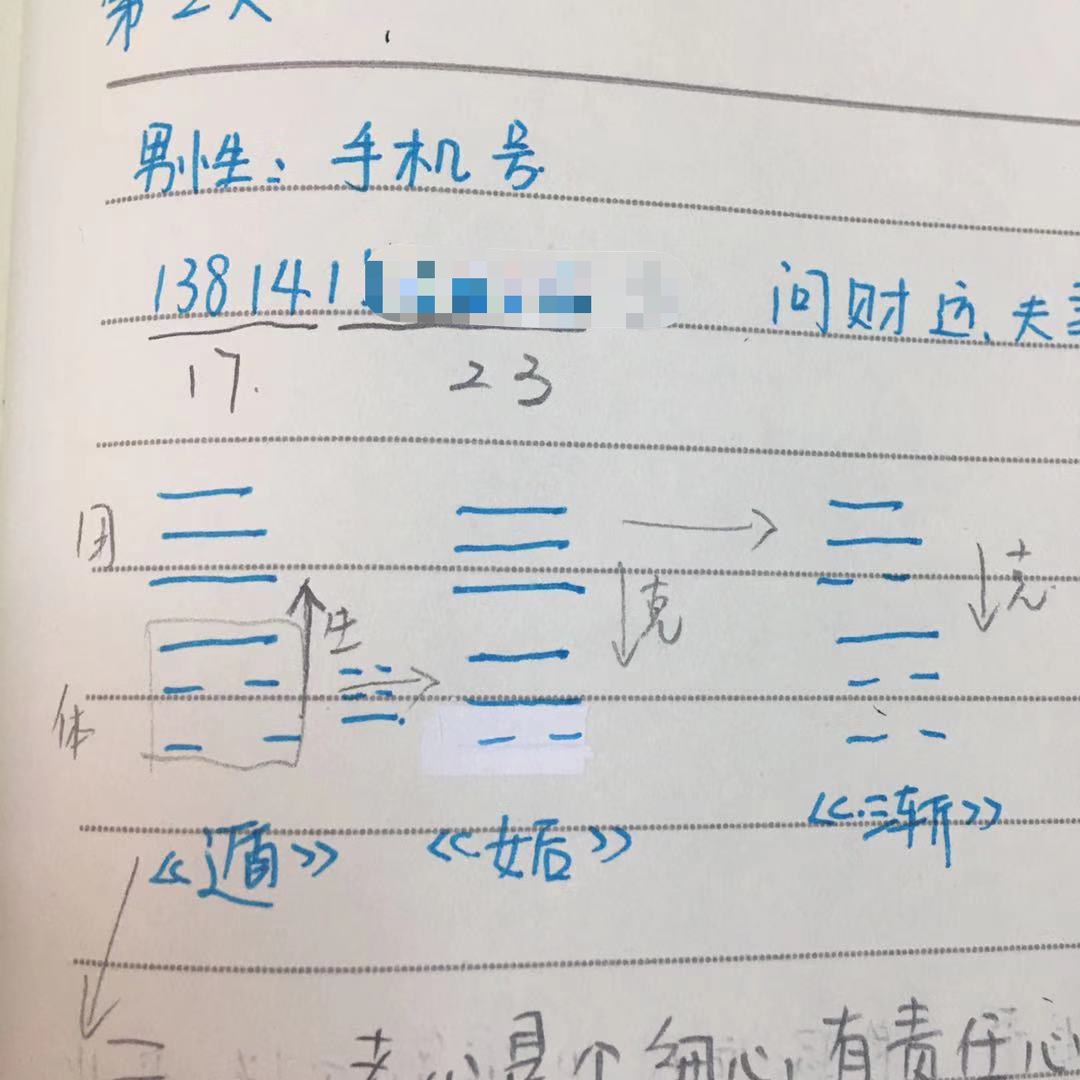 第2天
男性：手机号
138141 问财运、夫妻
17. 23
用
生 克 克
体
《遁》 《姤》 《渐》
是个细心，有责任心